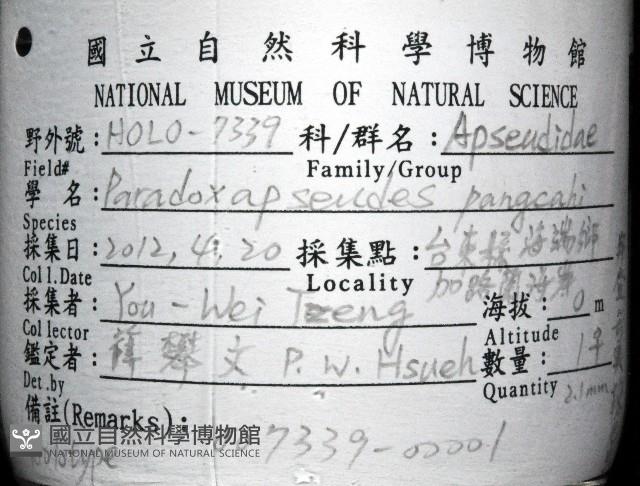 國立自然科學博物館
NATIONAL MUSEUM OF NATURAL SCIENCE
野外號：HOLO-7339 科/群名：Apseudidae
Field# Family/Group
學 名：Paradoxapseudes pangcahi
Species
採集日：2012, 4, 20 採集點：台東縣海端鄉
Coll.Date Locality 加路蘭海岸
採集者：You-Wei Tzeng 海拔：0 m
Collector Altitude
鑑定者：薛攀文 P. W. Hsueh 數量：1♀
Det.by Quantity 2.1mm
備註(Remarks)：
7339-00001
Holotype
國立自然科學博物館
NATIONAL MUSEUM OF NATURAL SCIENCE